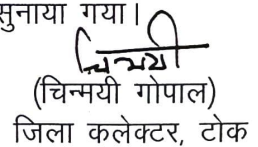 सुनाया गया।
चिन्मयी
(चिन्मयी गोपाल)
जिला कलेक्टर, टोक